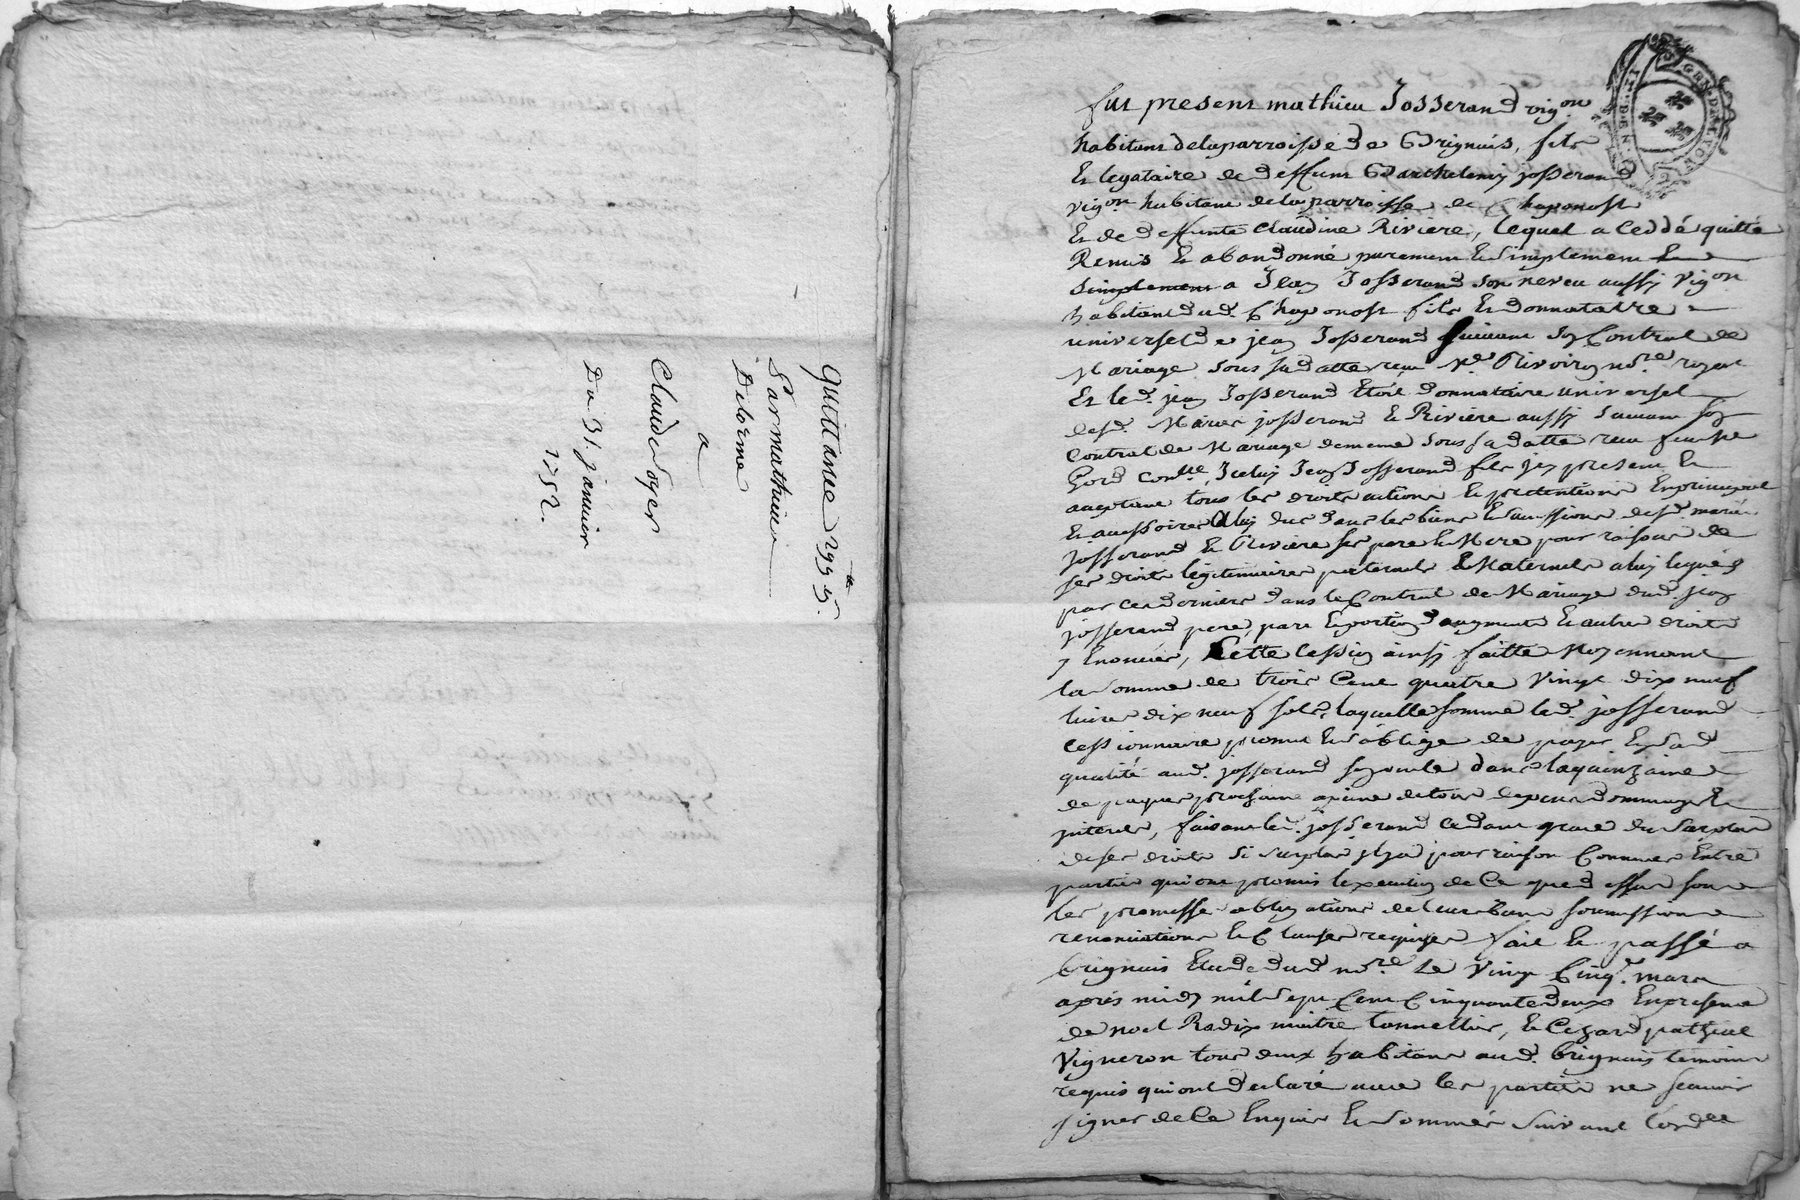 Quittance 299 lt 5.
Par mathieu
Delorme
a
Claude Soyer
Du 31. janvier
1752.
fut present mathieu Josserand vig.on
habitant de la parroisse de Brignais, fils
Et legataire de deffunt Barthelemy josserand
vig.on habitant de la parroisse de Chaponost
Et de deffunte Claudine Riviere, lequel a Ceddé quitté
Remis Et abandonné purement Et simplement Et
simplement a Jean Josserand son neveu aussy vigon
habitant dud. Chaponost fils Et donnatatre
universel de jean Josserand suivant son Contrat de
Mariage sous sa datte receu Me Rivoiry no.re royal
Et led. jean Josserand Etoit donnataire universel
desd. Mariés josserand Et Riviere aussy suivant son
Contrat de Mariage de meme sous sa datte receu
Jceluy Jean Josserand fils jcy present Et
aceptant tous les droits actions Et pretentions En principal
Et accessoires a luy dus dans les biens Et successions desd. mariés
josserand Et Riviere ses pere Et Mere pour raison de
ses droits légitimaires paternels Et Maternels a luy legués
par Ces derniers dans le Contrat de Mariage dud. jean
josserand pere, part Et portion d'augment Et autres droits
y Enoncés, Cette Cession ainsy faitte Moyennant
la somme de trois Cent quatre vingt dix neuf
livres dix neuf sols, laquelle somme led. josserand
Cessionnaire promet Et s'oblige de payer En sad.
qualité aud. josserand son oncle dans la quinzaine
de paques prochaine a peine de tous depens dommages Et
jnterets, faisant led. josserand Cedant grace du surplus
de ses droits si surplus jl y a pour raison Convenu Entre
parties qui ont promis l'execution de Ce que dessus sous
les promesse obligations de leurs biens soumissions
renonciations Et Clauses requises fait Et passé a
brignais Etude dud. no.re Le vingt Cinq.e mars
aprés midy mil sept Cent Cinquante deux En presence
de noel Radix maitre tonnellier, Et Cezard
Vigneron tous deux habitans aud. brignais temoins
requis qui ont declaré avec les parties ne scavoir
signer de Ce Enquis Et sommés suivant l'ord.ce